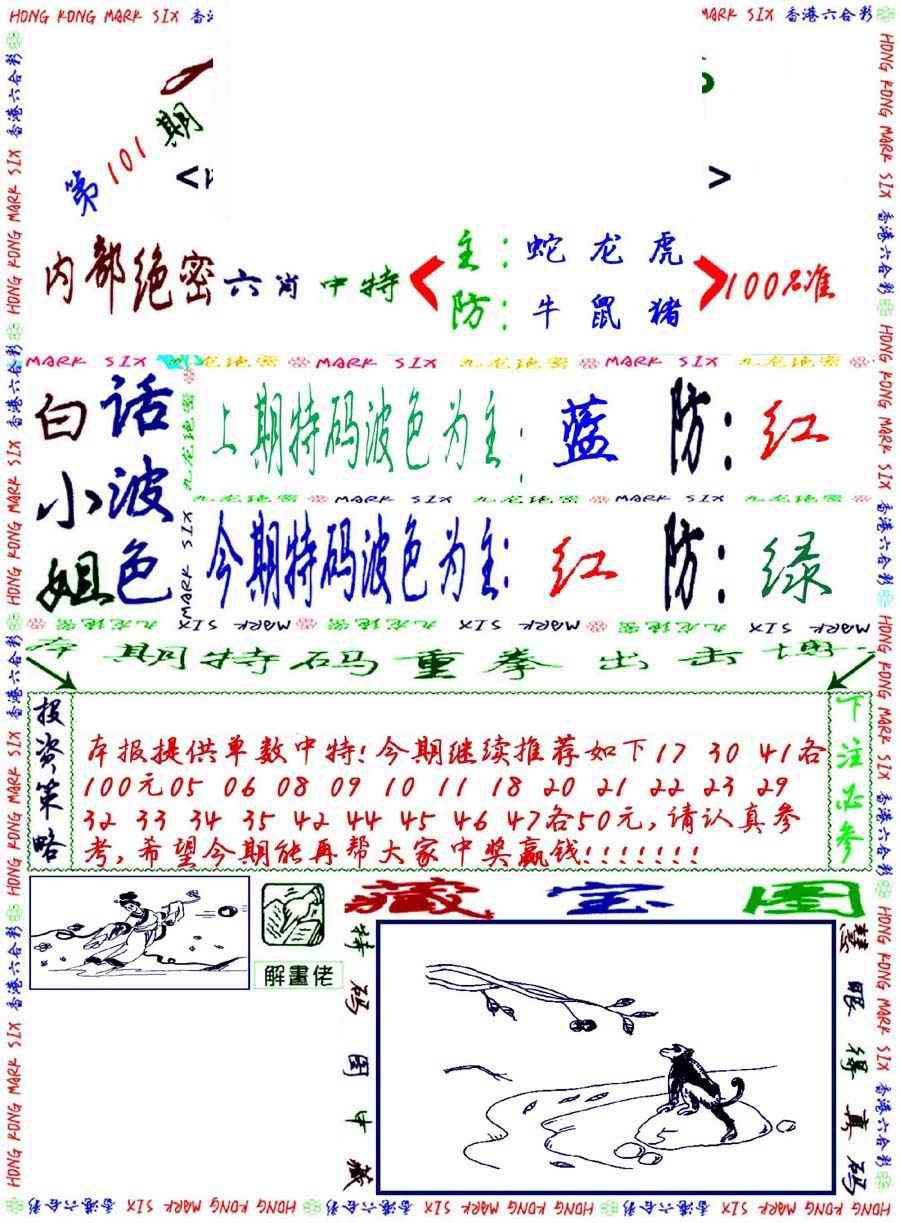 HONG KONG MARK SIX 香
MARK SIX 香港六合彩
第101期
内部绝密六肖中特
主：蛇 龙 虎
防：牛 鼠 猪
100%准
MARK SIX 九龙绝密 MARK SIX 九龙绝密 MARK SIX 九龙绝密
白话
小波
姐色
上期特码波色为主：蓝 防：红
九龙绝密 MARK SIX 九龙绝密 MARK SIX 九龙绝密
今期特码波色为主：红 防：绿
九龙绝密 MARK SIX 九龙绝密 MARK SIX 九龙绝密 MARK SIX
本期特码重拳出击
投资策略
本报提供单数中特!今期继续推荐如下17 30 41各
100元05 06 08 09 10 11 18 20 21 22 23 29
32 33 34 35 42 44 45 46 47各50元,请认真参
考,希望今期能再帮大家中奖赢钱!!!!!!!
下注必参
解畫佬
藏宝图
特码图中藏
慧眼得真码
HONG KONG MARK SIX 香港六合彩